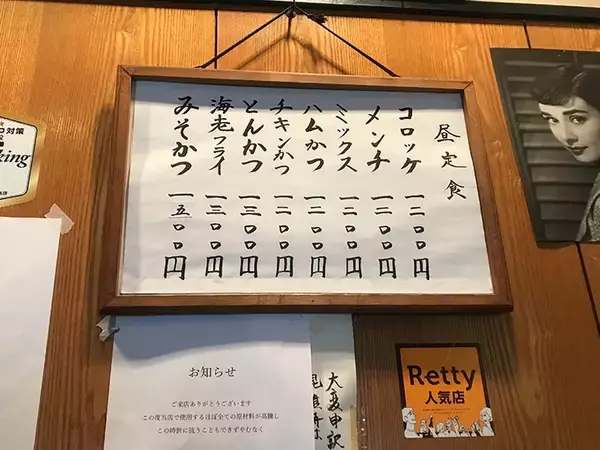 昼定食
コロッケ 一二〇〇円
メンチ 一二〇〇円
ミックス 一二〇〇円
ハムかつ 一二〇〇円
チキンかつ 一二〇〇円
とんかつ 一三〇〇円
海老フライ 一三〇〇円
みそかつ 一五〇〇円
お知らせ
ご来店ありがとうございます
この度当店で使用するほぼ全ての原材料が高騰し
この時世に抗うこともできずやむなく
大変申訳
Retty
人気店
ロ対策
king